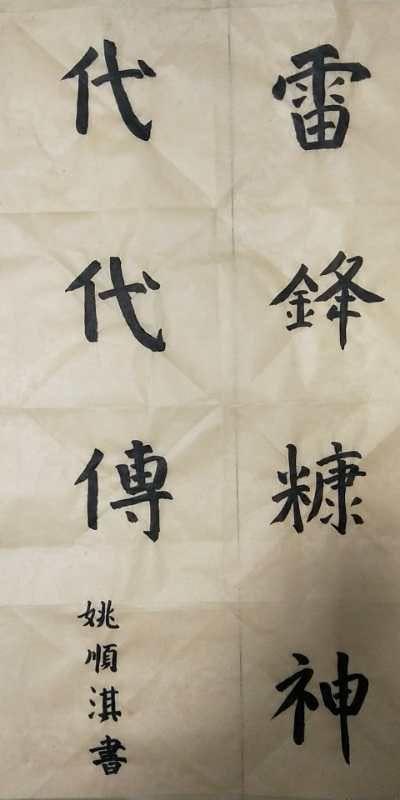 雷鋒糠神
代代傳
姚順淇書